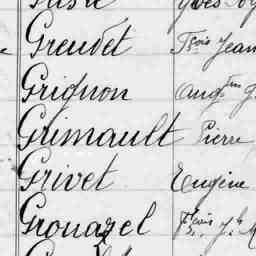 Greudet Fçois Jean
Grignon Aug.tin
Grimault Pierre
Grivet Eugène
Grouazel Fçois